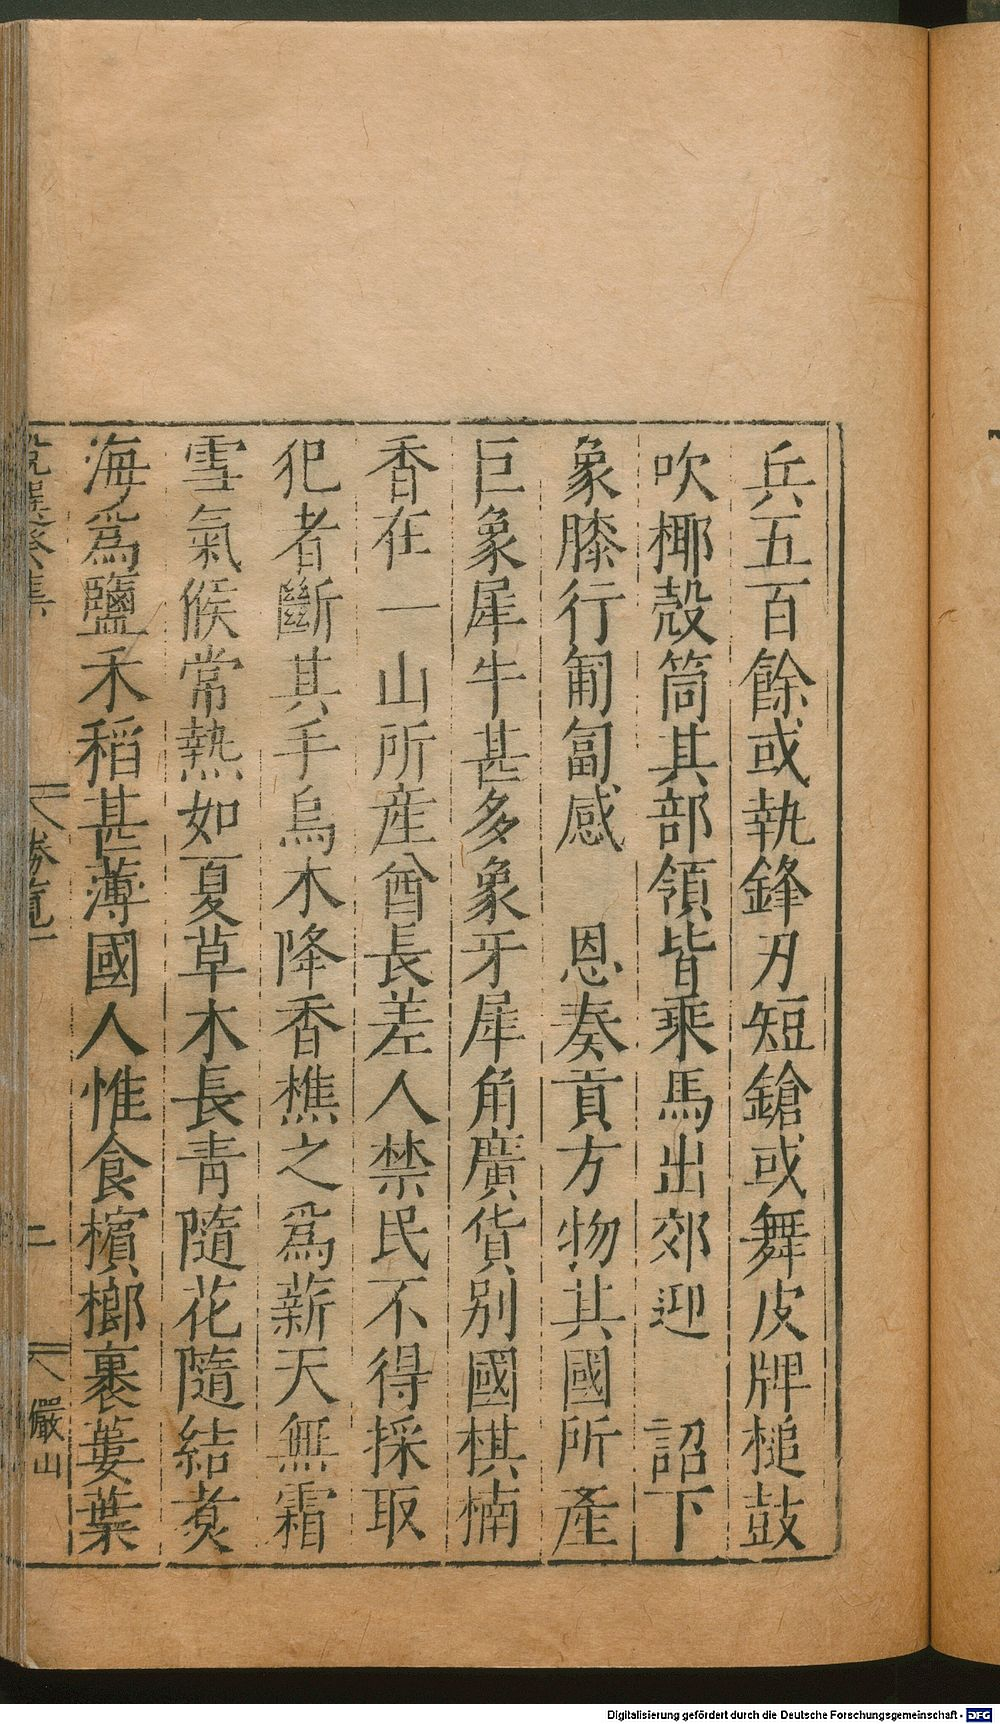 兵五百餘或執鋒刃短鎗或舞皮牌槌鼓
吹椰殼筒其部領皆乘馬出郊迎 詔下
象膝行匍匐感 恩奏貢方物其國所產
巨象犀牛甚多象牙犀角廣貨别國棋楠
香在一山所産酋長差人禁民不得採取
犯者斷其手烏木降香樵之爲薪天無霜
雪氣候常熱如夏草木長青隨花隨結煑
海爲鹽禾稻甚薄國人惟食檳榔裹蔞葉
勝覽一
二
儼山
Digitalisierung gefördert durch die Deutsche Forschungsgemeinschaft - DFG